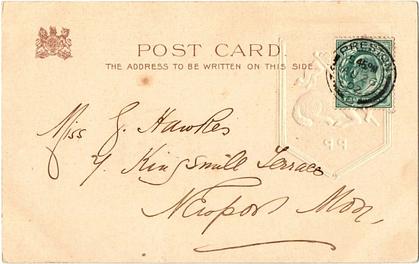 POST CARD
THE ADDRESS TO BE WRITTEN ON THIS SIDE.
PRESTON
Miss G. Hawkes
7. Kingsmill Terrace
Newport Mon,